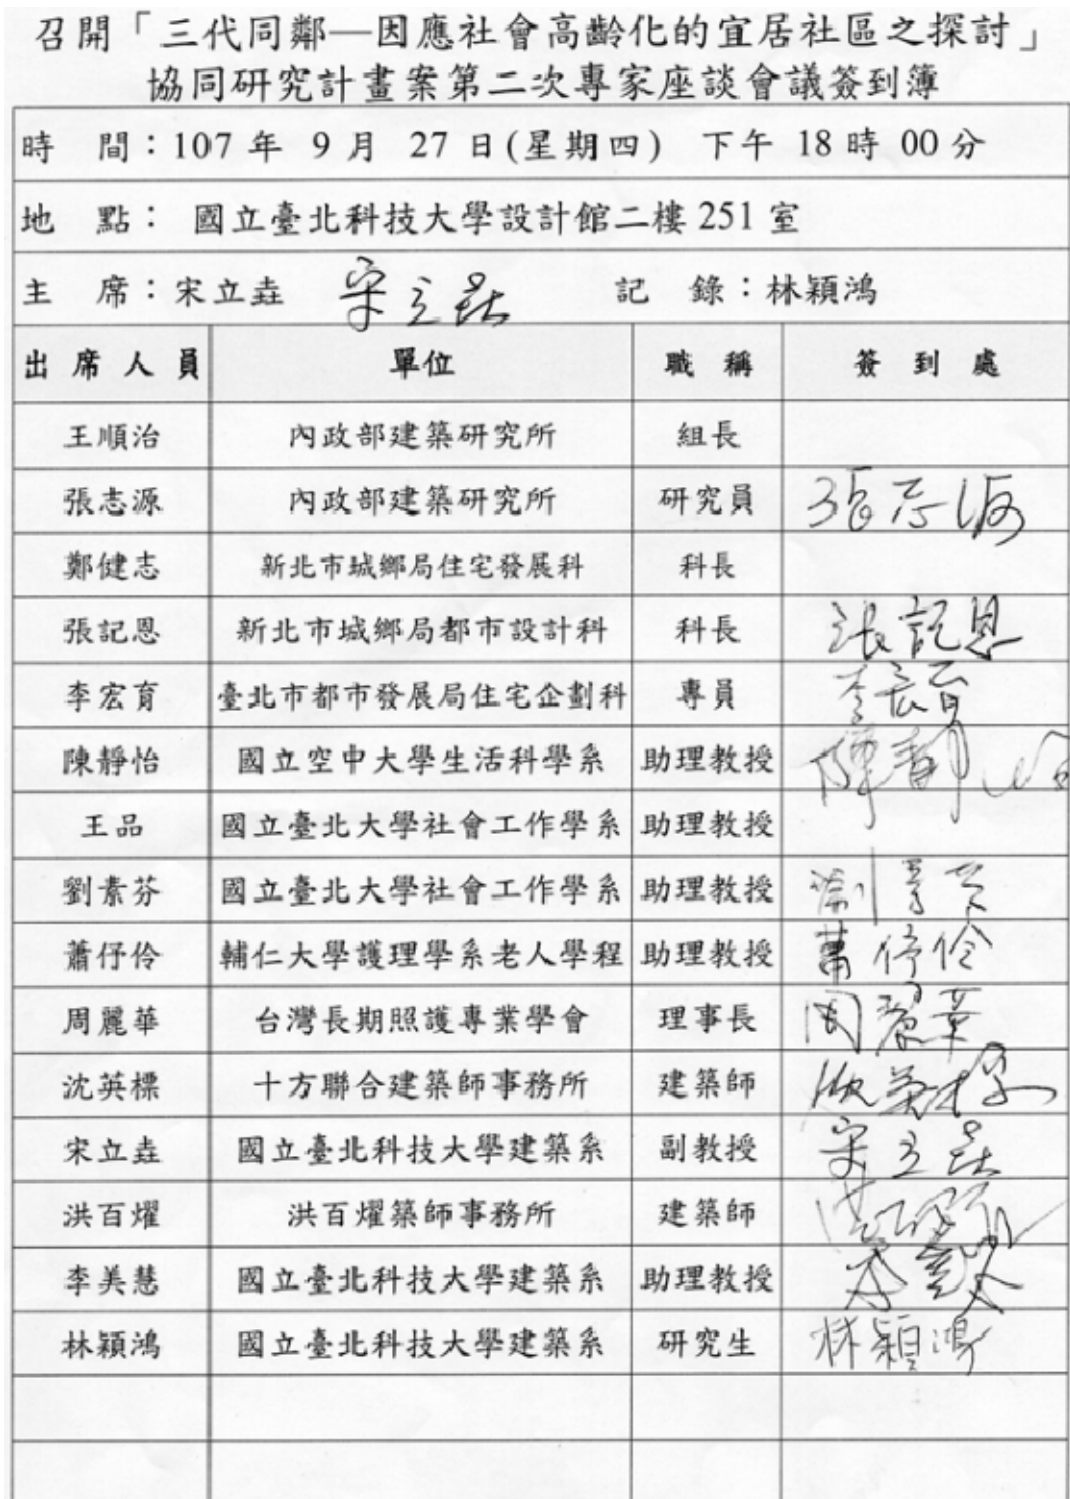 召開「三代同鄰—因應社會高齡化的宜居社區之探討」
協同研究計畫案第二次專家座談會議簽到簿
時 間：107 年 9 月 27 日(星期四) 下午 18 時 00 分
地 點： 國立臺北科技大學設計館二樓 251 室
主 席：宋立垚 宋立垚 記 錄：林穎鴻
出 席 人 員 單位 職 稱 簽 到 處
王順治 內政部建築研究所 組長
張志源 內政部建築研究所 研究員 張志源
鄭健志 新北市城鄉局住宅發展科 科長
張記恩 新北市城鄉局都市設計科 科長 張記恩
李宏育 臺北市都市發展局住宅企劃科 專員 李宏育
陳靜怡 國立空中大學生活科學系 助理教授 陳靜怡
王品 國立臺北大學社會工作學系 助理教授
劉素芬 國立臺北大學社會工作學系 助理教授 劉素芬
蕭伃伶 輔仁大學護理學系老人學程 助理教授 蕭伃伶
周麗華 台灣長期照護專業學會 理事長 周麗華
沈英標 十方聯合建築師事務所 建築師 沈英標
宋立垚 國立臺北科技大學建築系 副教授 宋立垚
洪百燿 洪百燿築師事務所 建築師
李美慧 國立臺北科技大學建築系 助理教授
林穎鴻 國立臺北科技大學建築系 研究生 林穎鴻